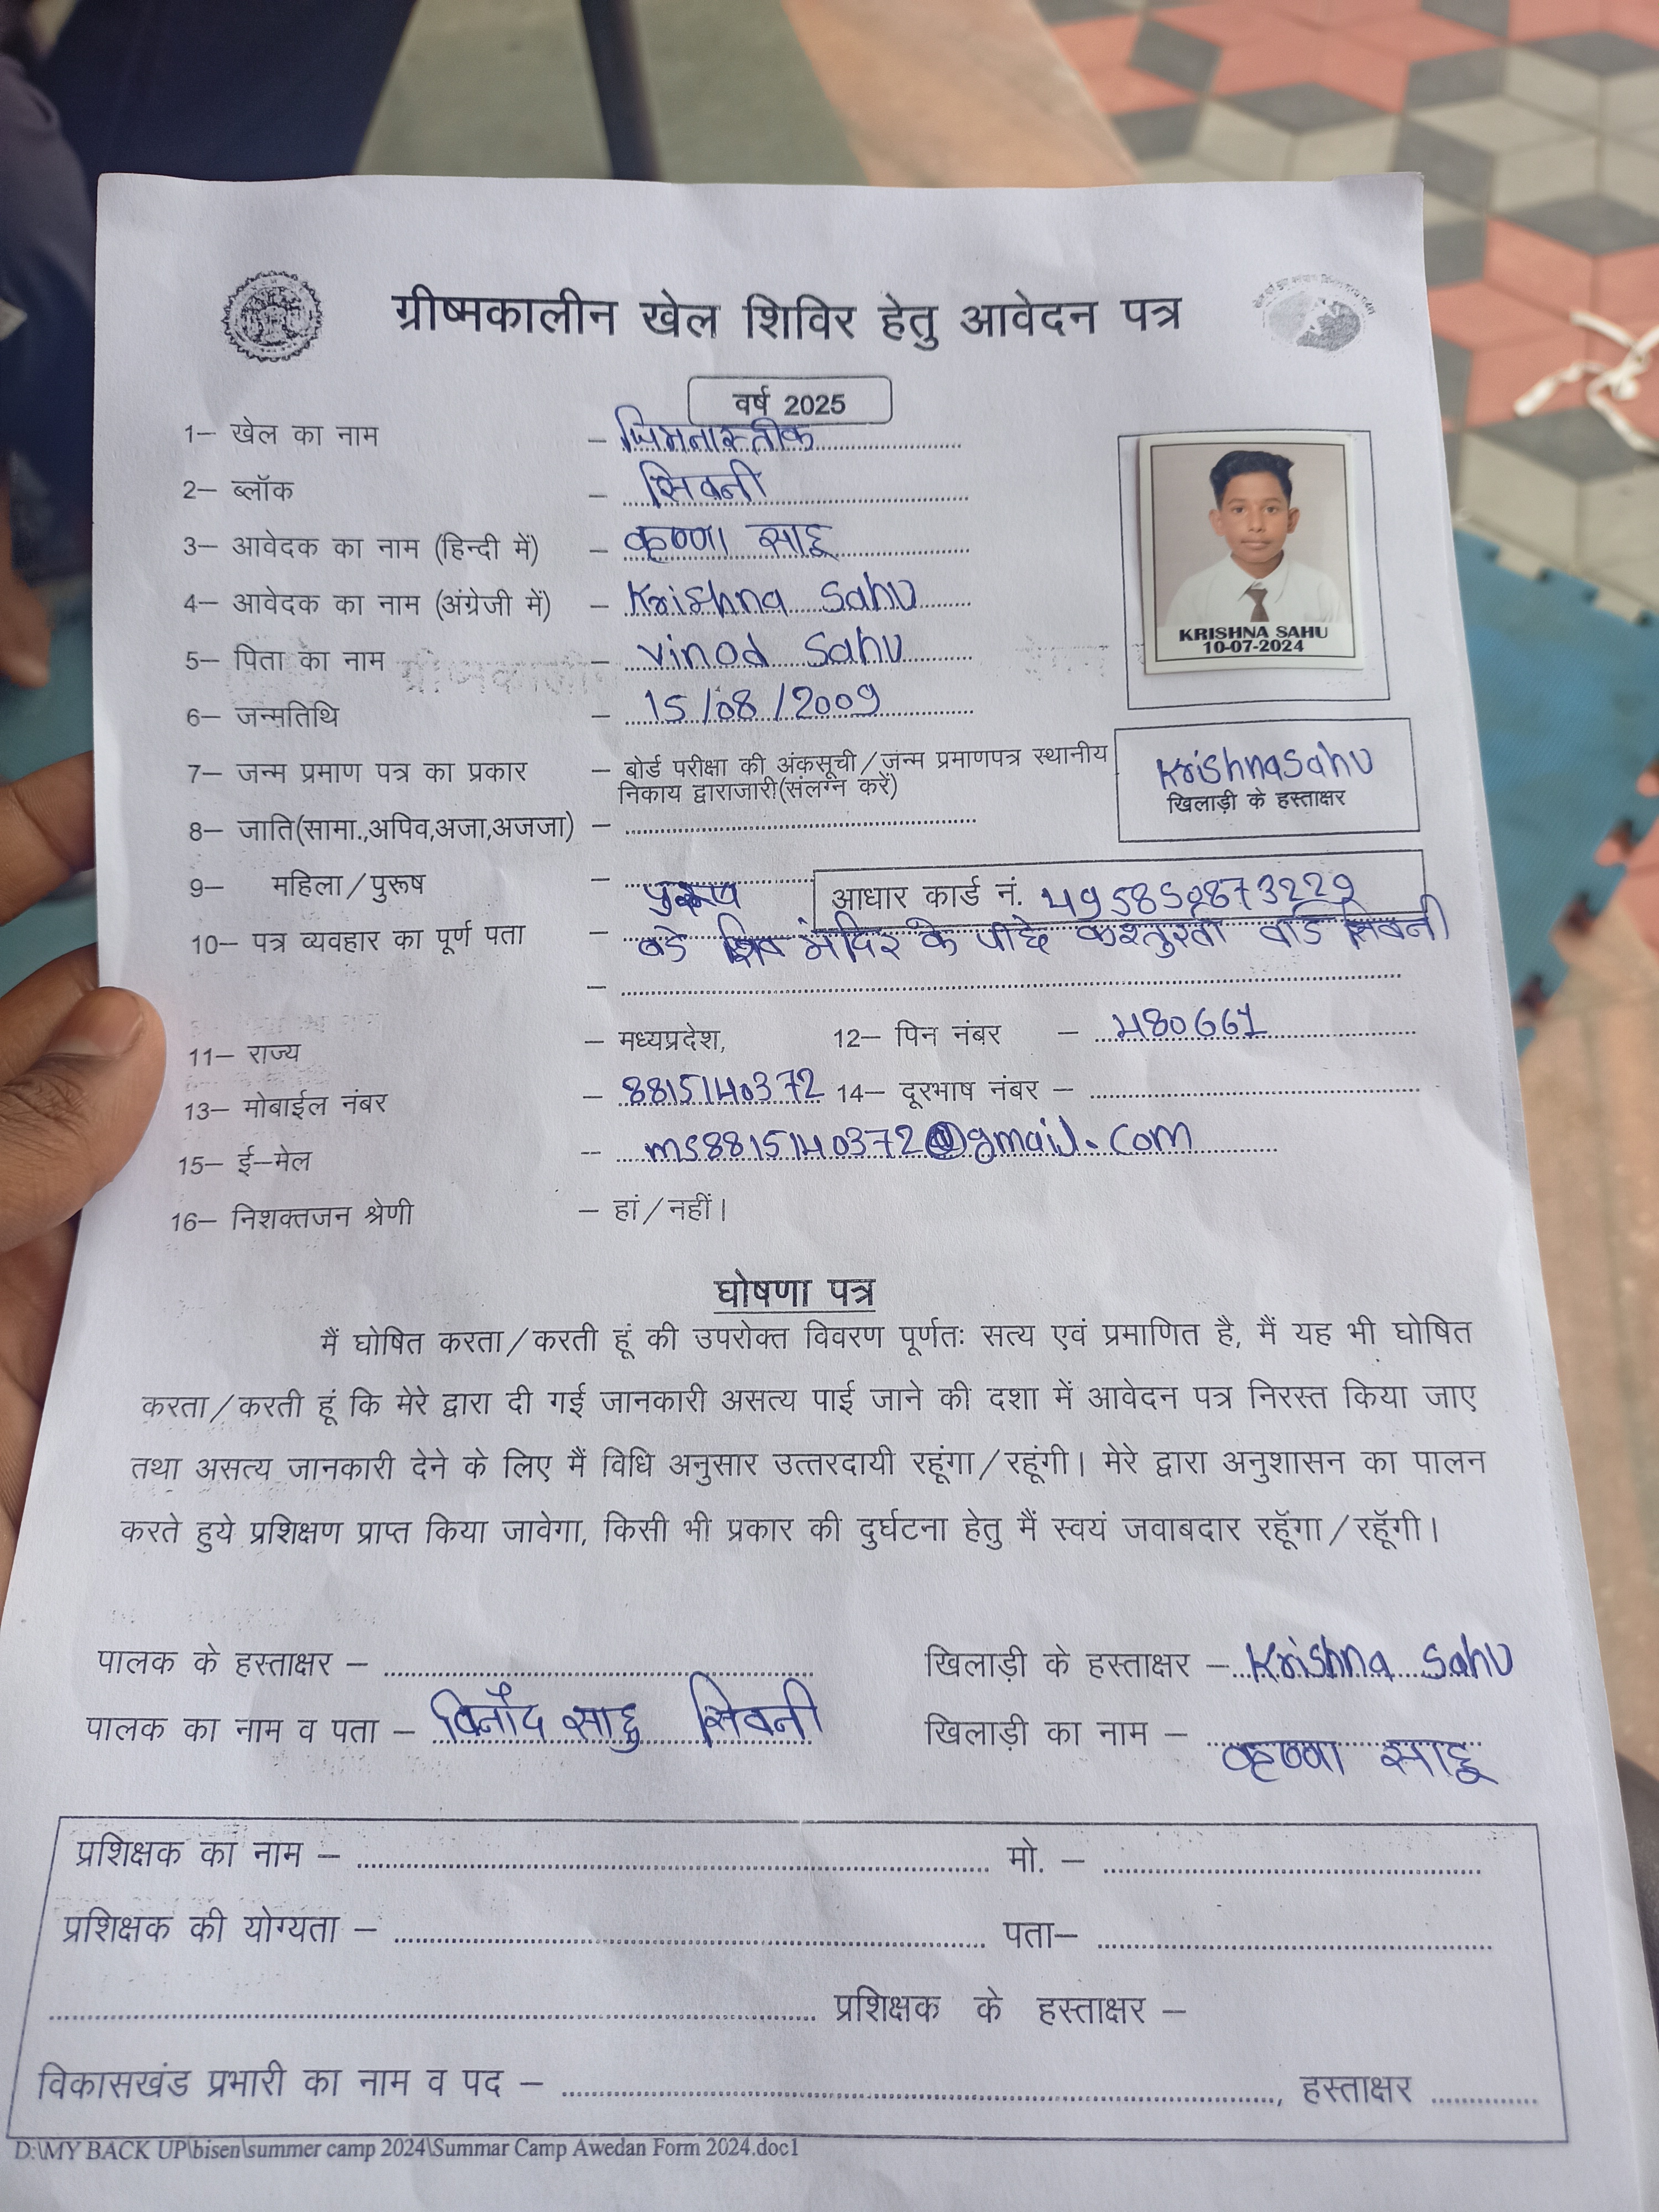 ग्रीष्मकालीन खेल शिविर हेतु आवेदन पत्र
वर्ष 2025
1– खेल का नाम – जिमनास्तीक
2– ब्लॉक – सिवनी
3– आवेदक का नाम (हिन्दी में) – कृष्णा साहू
4– आवेदक का नाम (अंग्रेजी में) – Krishna Sahu
KRISHNA SAHU
10-07-2024
5– पिता का नाम – Vinod Sahu
6– जन्मतिथि – 15/08/2009
7– जन्म प्रमाण पत्र का प्रकार – बोर्ड परीक्षा की अंकसूची/जन्म प्रमाणपत्र स्थानीय
निकाय द्वाराजारी(संलग्न करें)
Krishna Sahu
खिलाड़ी के हस्ताक्षर
8– जाति(सामा.,अपिव,अजा,अजजा) –
9– महिला/पुरूष – पुरूष आधार कार्ड नं. 495852873229
10– पत्र व्यवहार का पूर्ण पता – बडे शिव मंदिर के पीछे कस्तुरबा वार्ड सिवनी
11– राज्य – मध्यप्रदेश, 12– पिन नंबर – 480661
13– मोबाईल नंबर – 8815140372 14– दूरभाष नंबर –
15– ई–मेल -- ms8815140372@gmail.com
16– निशक्तजन श्रेणी – हां/नहीं।
घोषणा पत्र
मैं घोषित करता/करती हूं की उपरोक्त विवरण पूर्णतः सत्य एवं प्रमाणित है, मैं यह भी घोषित
करता/करती हूं कि मेरे द्वारा दी गई जानकारी असत्य पाई जाने की दशा में आवेदन पत्र निरस्त किया जाए
तथा असत्य जानकारी देने के लिए मैं विधि अनुसार उत्तरदायी रहूंगा/रहूंगी। मेरे द्वारा अनुशासन का पालन
करते हुये प्रशिक्षण प्राप्त किया जावेगा, किसी भी प्रकार की दुर्घटना हेतु मैं स्वयं जवाबदार रहूॅगा/रहूॅगी।
पालक के हस्ताक्षर – खिलाड़ी के हस्ताक्षर – Krishna Sahu
पालक का नाम व पता – विनोद साहु सिवनी खिलाड़ी का नाम – कृष्णा साहू
प्रशिक्षक का नाम – मो. –
प्रशिक्षक की योग्यता – पता–
प्रशिक्षक के हस्ताक्षर –
विकासखंड प्रभारी का नाम व पद – , हस्ताक्षर
D:\MY BACK UP\bisen\summer camp 2024\Summar Camp Awedan Form 2024.doc1